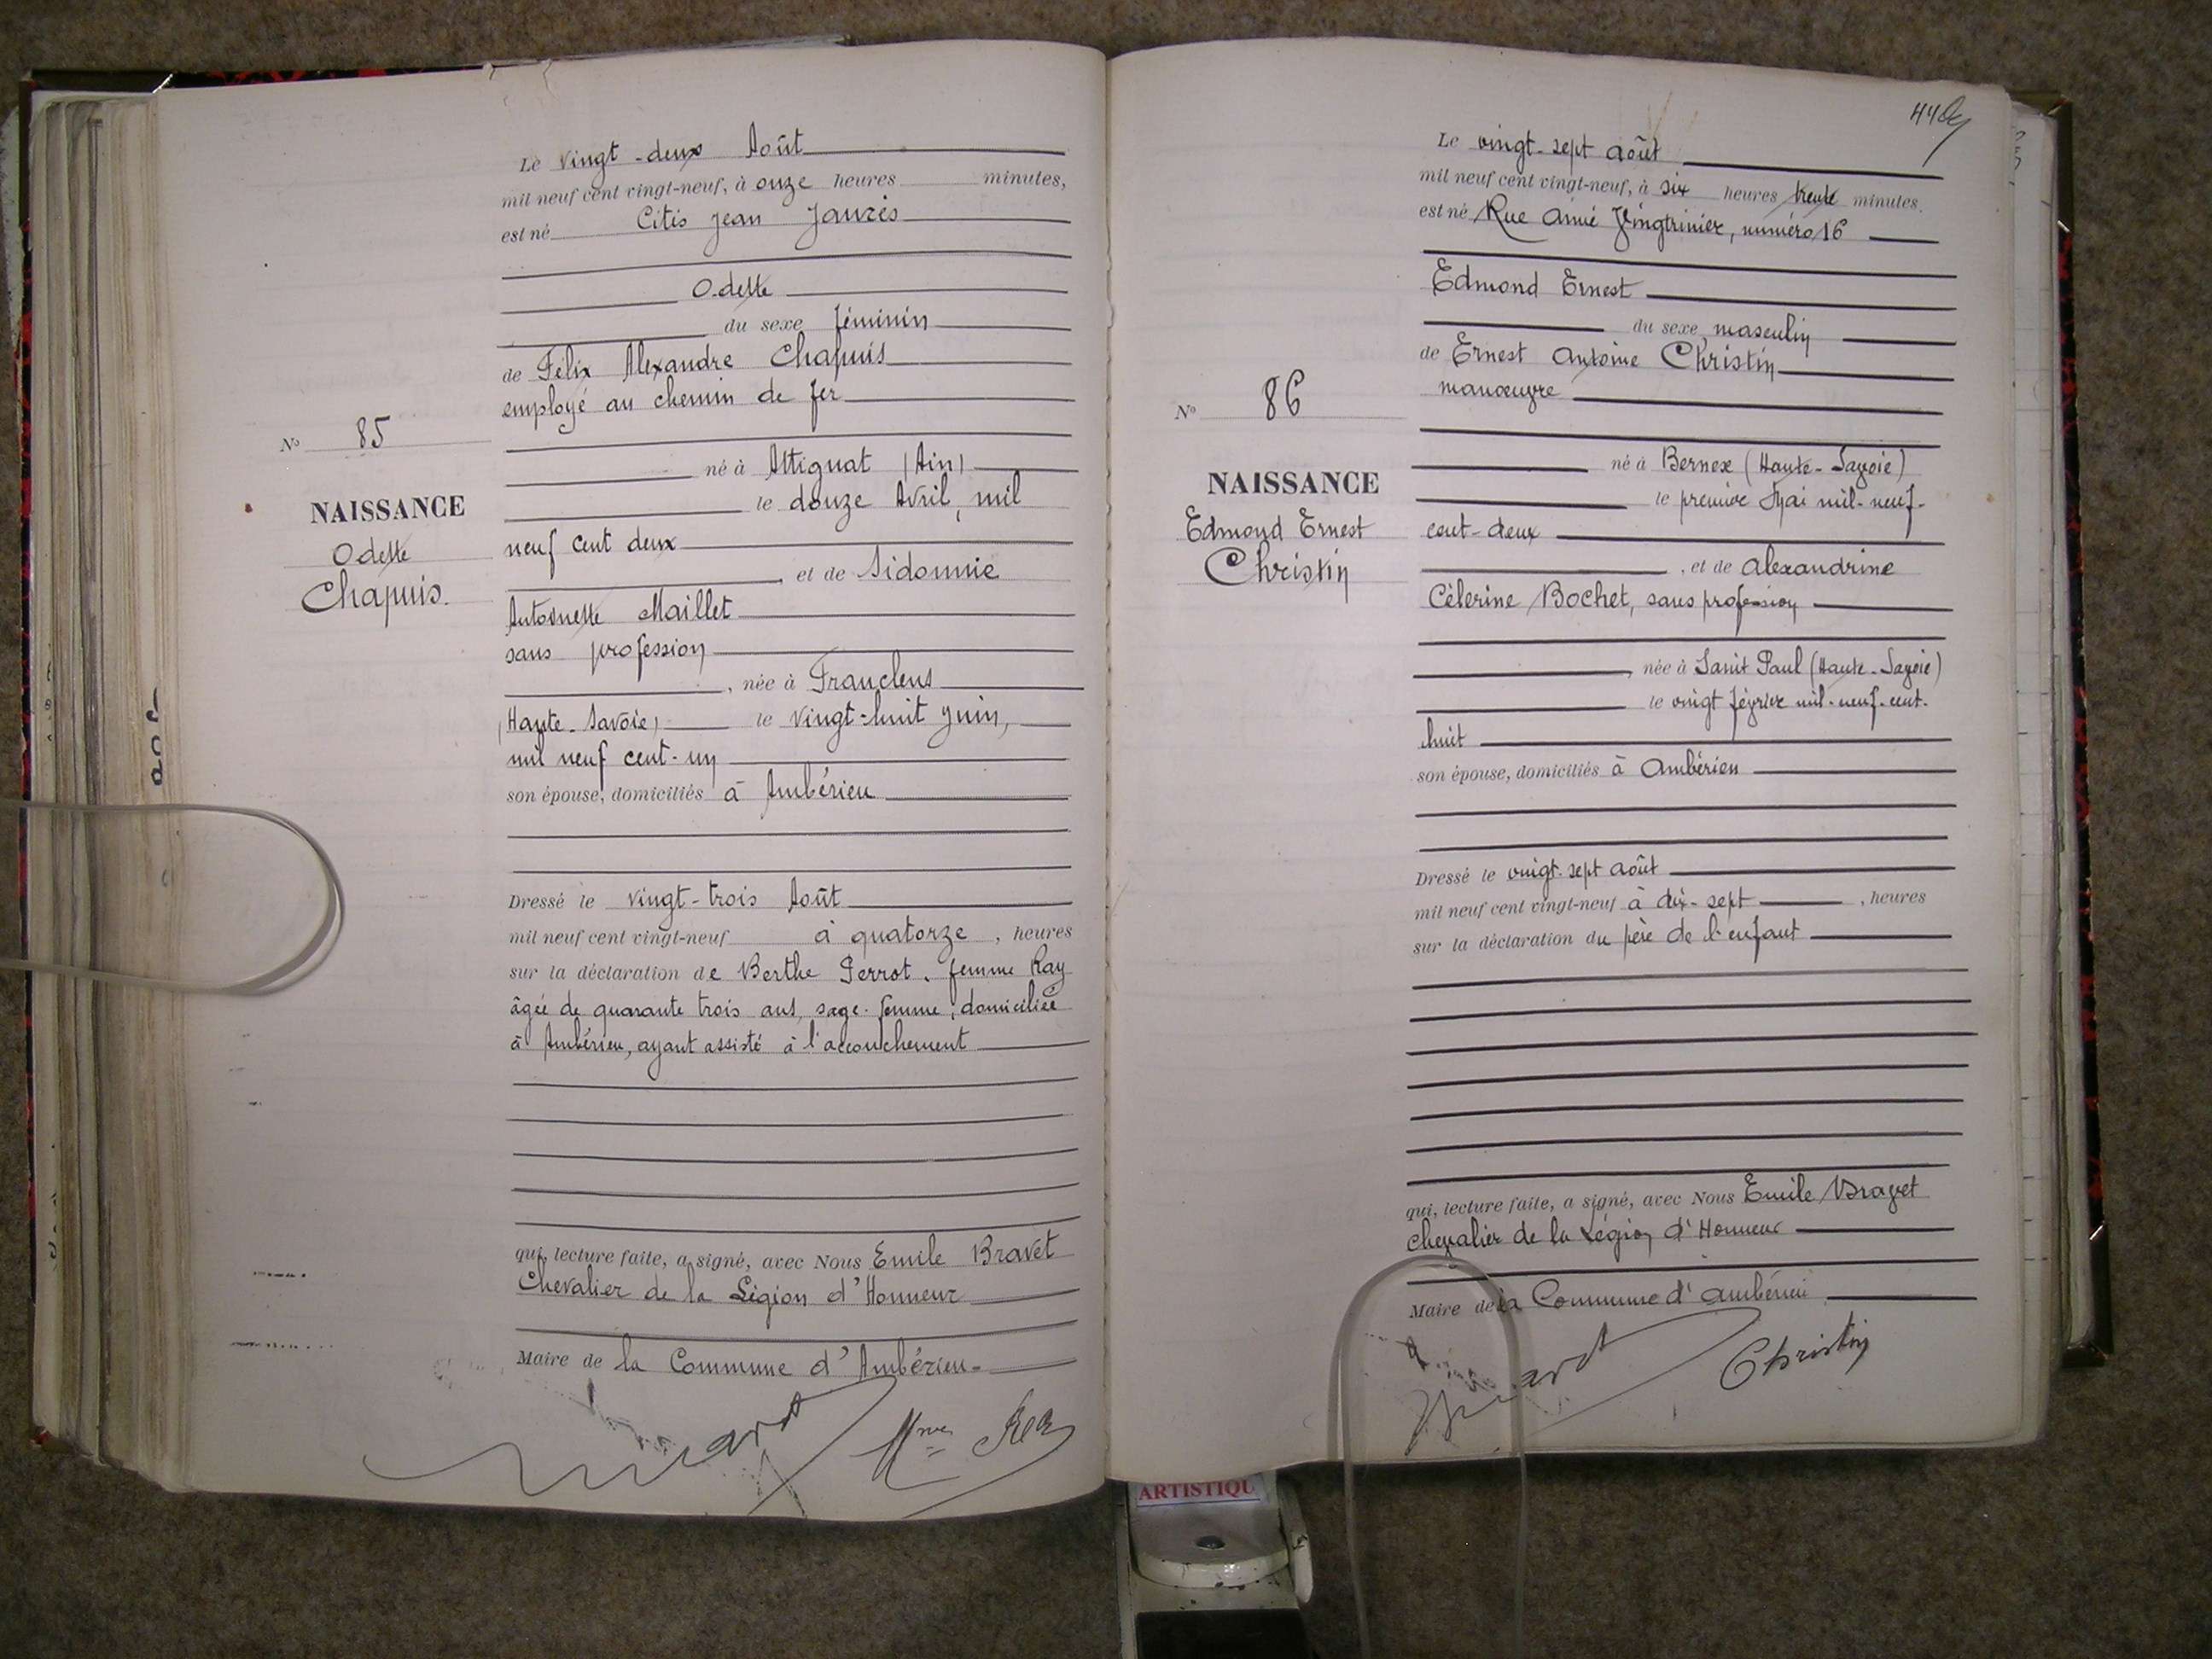 N° 85
NAISSANCE
Odette
Chapuis.
Le vingt-deux Août
mil neuf cent vingt-neuf, à onze heures minutes,
est né Cités Jean Jaurès
Odette
du sexe féminin
de Félix Alexandre Chapuis
employé au chemin de fer
né à Attignat (Ain)
le douze Avril, mil
neuf cent deux
, et de Sidonnie
Antoinette Maillet
sans profession
, née à Franclens
(Haute-Savoie) le vingt-huit Juin,
mil neuf cent-un
son épouse, domiciliés à Ambérieu
Dressé le vingt-trois Août
mil neuf cent vingt-neuf à quatorze , heures
sur la déclaration de Berthe Perrot, femme Ray
âgée de quarante trois ans, sage-femme, domiciliée
à Ambérieu, ayant assisté à l'accouchement
qui, lecture faite, a signé, avec Nous Emile Bravet
Chevalier de la Légion d'Honneur
Maire de la Commune d'Ambérieu-
Mme
N° 86
NAISSANCE
Edmond Ernest
Christin
Le vingt-sept août
mil neuf cent vingt-neuf, à six heures trente minutes.
est né Rue Aimé Vingtrinier, numéro 16
Edmond Ernest
du sexe masculin
de Ernest Antoine Christin
manœuvre
né à Bernex (Haute-Savoie)
le premier Mai mil-neuf-
cent-deux
, et de Alexandrine
Célerine Bochet, sans profession
, née à Sanit Paul (Haute-Savoie)
le vingt février mil-neuf-cent-
huit
son épouse, domiciliés à Ambérieu
Dressé le vingt-sept août
mil neuf cent vingt-neuf à dix-sept , heures
sur la déclaration du père de l'enfant
qui, lecture faite, a signé, avec Nous Emile Bravet
chevalier de la Légion d'Honneur
Maire de la Commune d'Ambérieu
Christin
ARTISTIQU